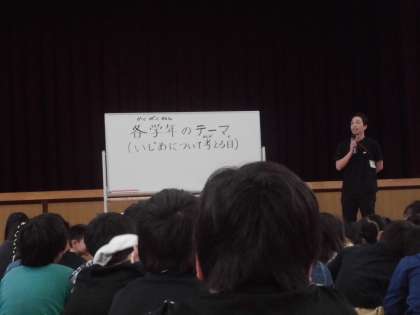 かく がく ねん
各学年のテーマ
(いじめについて考える日)